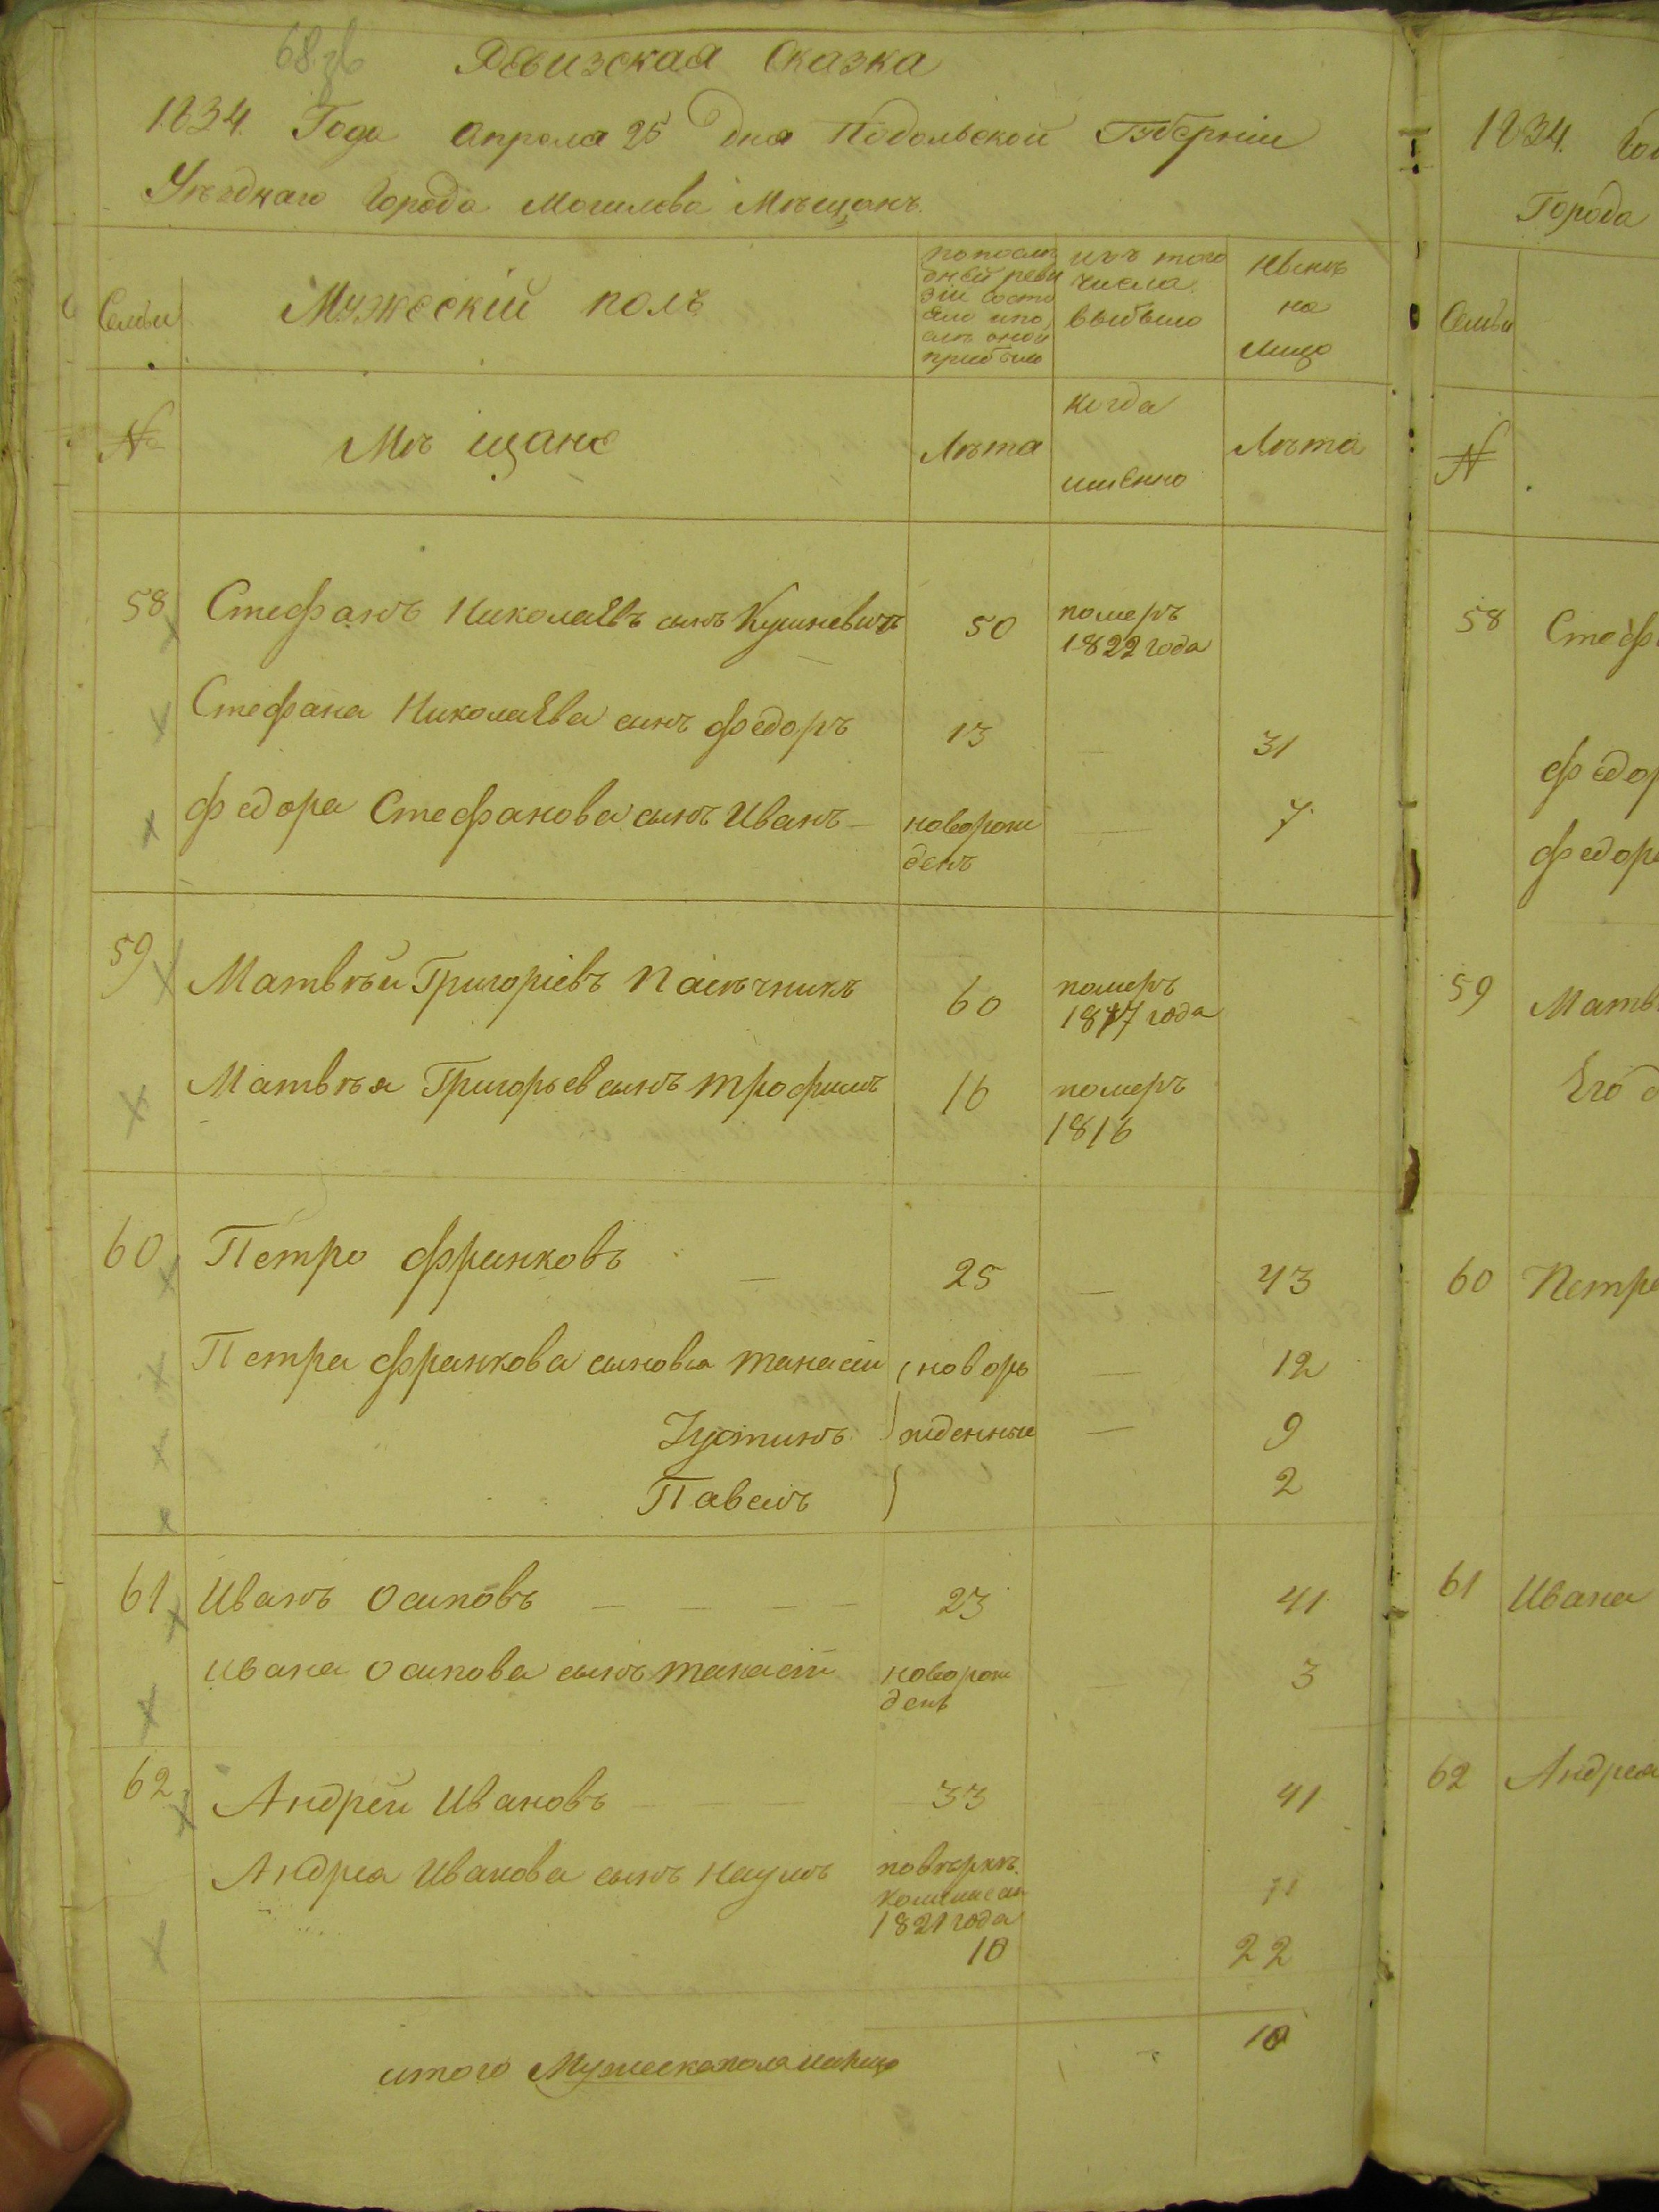 Ревизская Сказка
1834. Года Апреля 25 Дня Подольской Губернии
Уѣзднаго Города Могилева Мѣщанъ.
Семьи
Мужескій полъ
по послѣ
дней реви
зіи состо
яло и по
слѣ оной
прибыло
изъ того
числа
выбыло
Нынѣ
на
лицо
№
Мѣщане
Лѣта
когда
именно
Лѣта
58 Стефанъ Николаевъ сынъ Кушневичъ 50 померъ
1822 года
Стефана Николаева сынъ Федоръ 13 — 31
Федора Стефанова сынъ Иванъ — новорож — 7
денъ
59 Матвѣй Григоріевъ Пасѣчникъ 60 померъ
1817 года
Матвѣя Григорьев сынъ Трофимъ 16 померъ
1816
60 Петро Франковъ — 25 — 43
Петра Франкова сыновья Танасій новоро — 12
Іустинъ жденные — 9
Павелъ 2
61 Иванъ Осиповъ — — — — 23 41
Ивана Осипова сынъ Танасій новорож 3
денъ
62 Андрей Ивановъ 33 41
Андрея Иванова сынъ Наумъ повѣркѣ
1821 года
10 22
итого Мужеска пола налицо 10
1834. Го
Города
Семьи
№
58 Стеф
Федор
Федор
59 Матв
Его
60 Петр
61 Ивана
62 Андрея